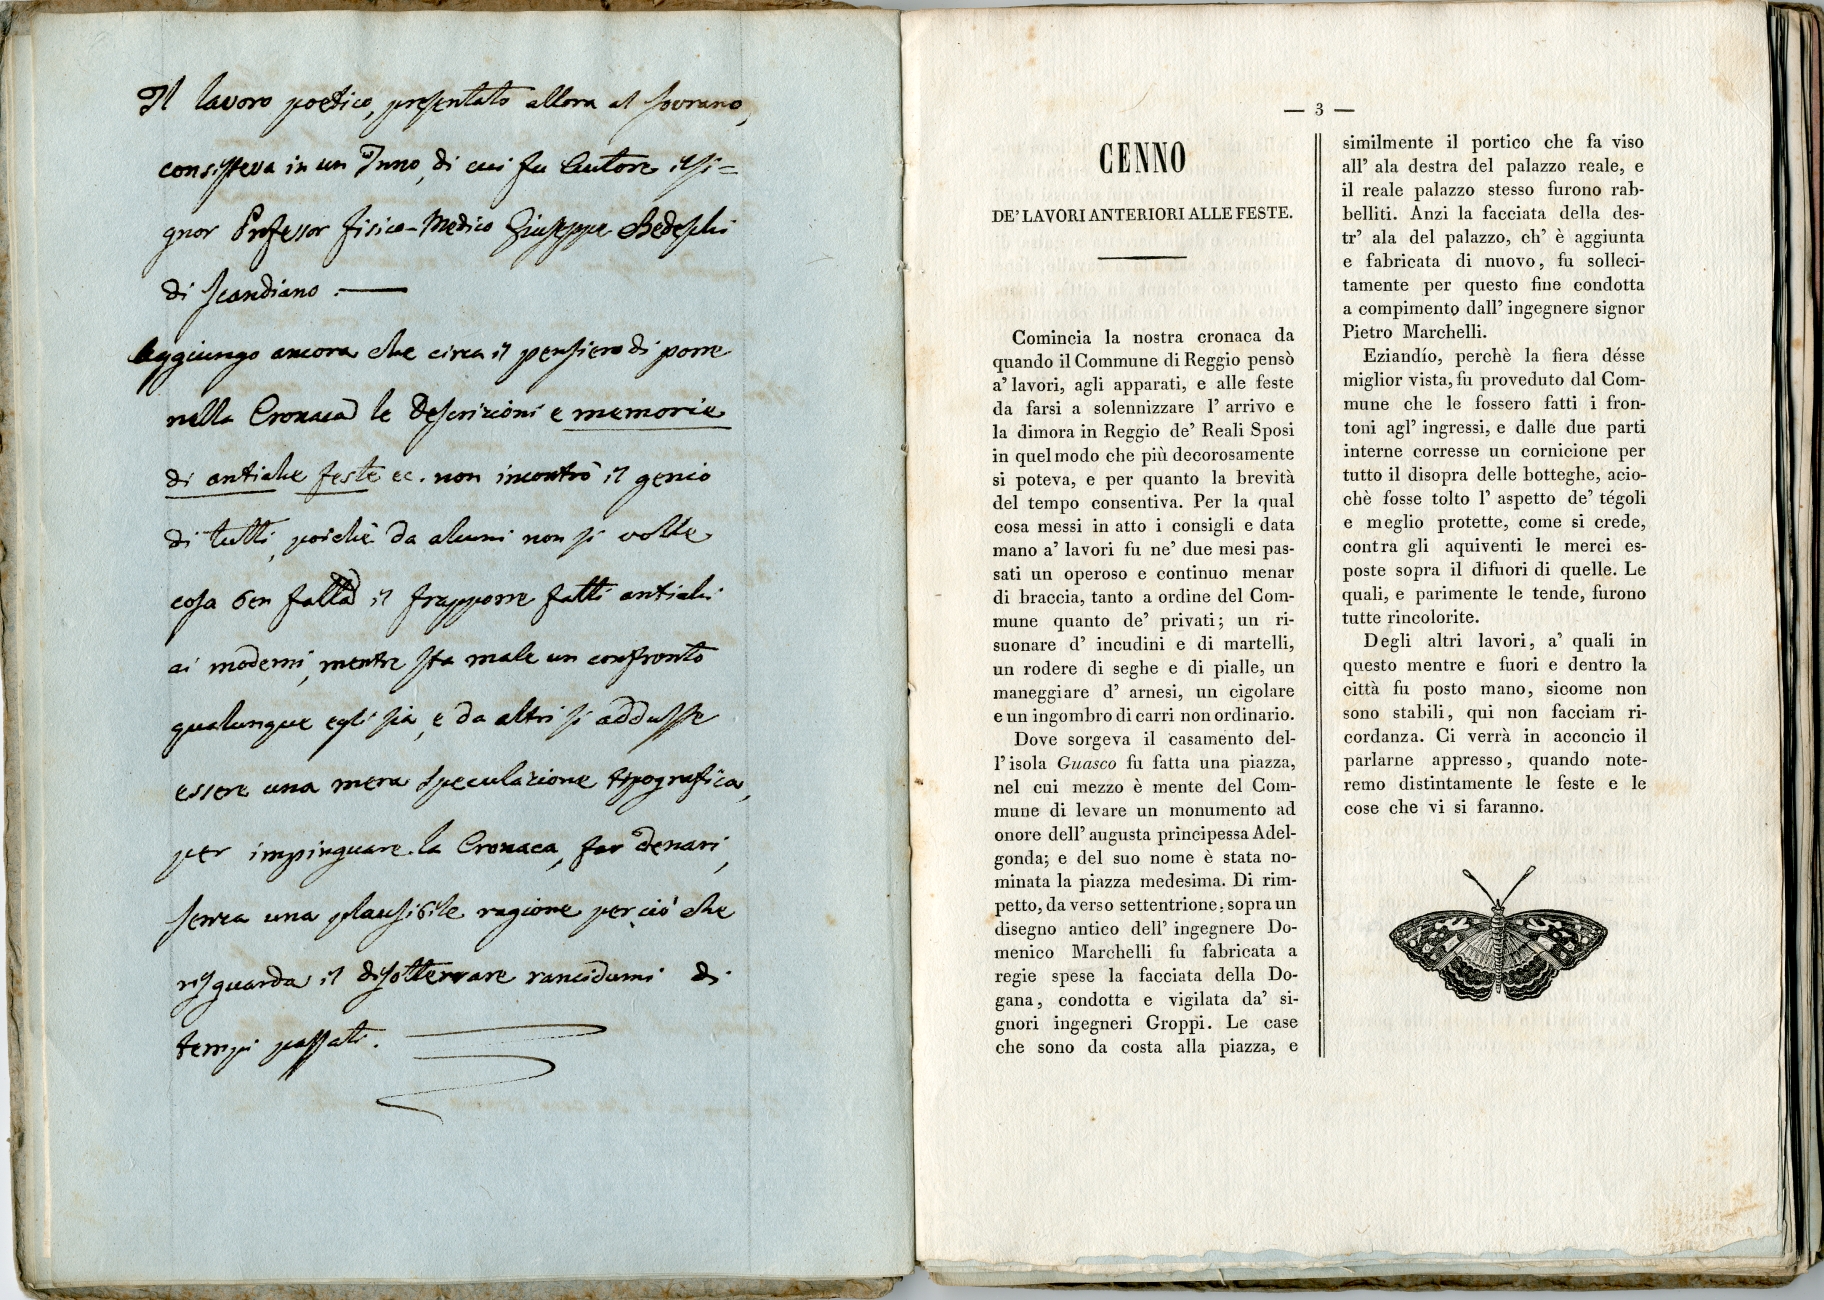 Il lavoro poetico, presentato allora al sovrano,
consisteva in un Inno, di cui fu Autore il si=
gnor Professor Fisico-Medico Giuseppe
di Scandiano. —
Aggiungo ancora che circa il pensiero di porre
nella Cronaca le descrizioni e memorie
di antiche feste ec. non incontrò il genio
di tutti, poichè da alcuni non si volle
cosa ben fatta il frapporre fatti antichi
ai moderni, mentre sta male un confronto
qualunque egli sia, e da altri si addusse
essere una mera speculazione tipografica,
per impinguare la Cronaca, far denari,
senza una plausibile ragione perciò che
risguarda il disotterrare rancidumi di
tempi passati.
— 3 —
CENNO
DE' LAVORI ANTERIORI ALLE FESTE.
Comincia la nostra cronaca da
quando il Commune di Reggio pensò
a' lavori, agli apparati, e alle feste
da farsi a solennizzare l' arrivo e
la dimora in Reggio de' Reali Sposi
in quel modo che più decorosamente
si poteva, e per quanto la brevità
del tempo consentiva. Per la qual
cosa messi in atto i consigli e data
mano a' lavori fu ne' due mesi pas-
sati un operoso e continuo menar
di braccia, tanto a ordine del Com-
mune quanto de' privati; un ri-
suonare d' incudini e di martelli,
un rodere di seghe e di pialle, un
maneggiare d' arnesi, un cigolare
e un ingombro di carri non ordinario.
Dove sorgeva il casamento del-
l' isola Guasco fu fatta una piazza,
nel cui mezzo è mente del Com-
mune di levare un monumento ad
onore dell' augusta principessa Adel-
gonda; e del suo nome è stata no-
minata la piazza medesima. Di rim-
petto, da verso settentrione, sopra un
disegno antico dell' ingegnere Do-
menico Marchelli fu fabricata a
regie spese la facciata della Do-
gana, condotta e vigilata da' si-
gnori ingegneri Groppi. Le case
che sono da costa alla piazza, e
similmente il portico che fa viso
all' ala destra del palazzo reale, e
il reale palazzo stesso furono rab-
belliti. Anzi la facciata della des-
tr' ala del palazzo, ch' è aggiunta
e fabricata di nuovo, fu solleci-
tamente per questo fine condotta
a compimento dall' ingegnere signor
Pietro Marchelli.
Eziandío, perchè la fiera désse
miglior vista, fu proveduto dal Com-
mune che le fossero fatti i fron-
toni agl' ingressi, e dalle due parti
interne corresse un cornicione per
tutto il disopra delle botteghe, acio-
chè fosse tolto l' aspetto de' tégoli
e meglio protette, come si crede,
contra gli aquiventi le merci es-
poste sopra il difuori di quelle. Le
quali, e parimente le tende, furono
tutte rincolorite.
Degli altri lavori, a' quali in
questo mentre e fuori e dentro la
città fu posto mano, sicome non
sono stabili, qui non facciam ri-
cordanza. Ci verrà in acconcio il
parlarne appresso, quando note-
remo distintamente le feste e le
cose che vi si faranno.